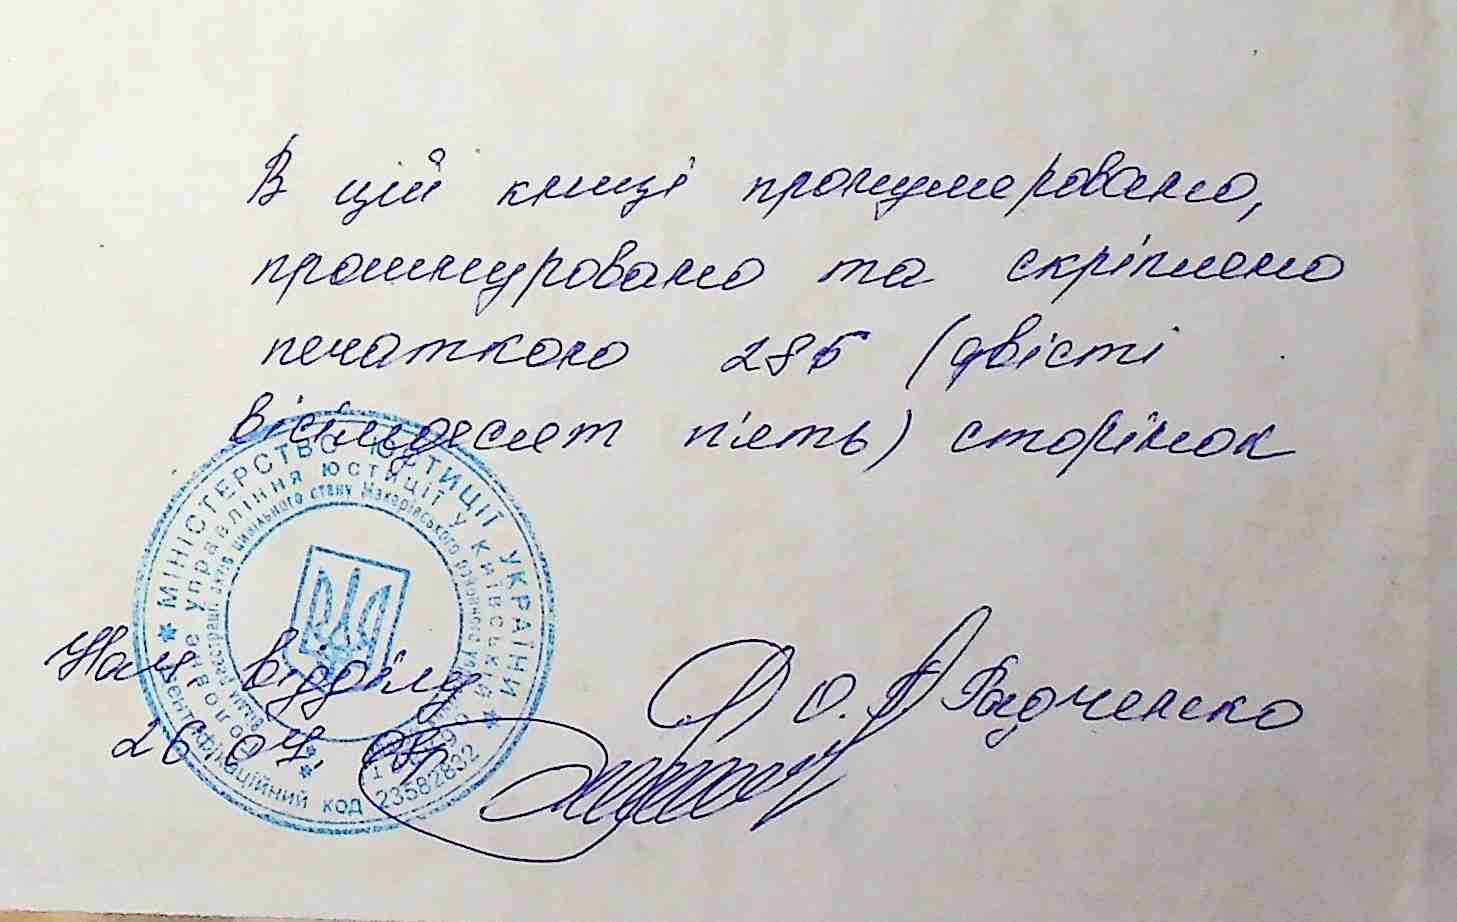 В цій книзі пронумеровано,
прошнуровано та скріплено
печаткою 285 (двісті
вісімдесят п'ять) сторінок
МІНІСТЕРСТВО ЮСТИЦІЇ УКРАЇНИ
управління юстиції у Київській
реєстрації актів цивільного стану Макарівського районного
Ідентифікаційний код 23582832
Нач відділу О. Радченко
26.04.